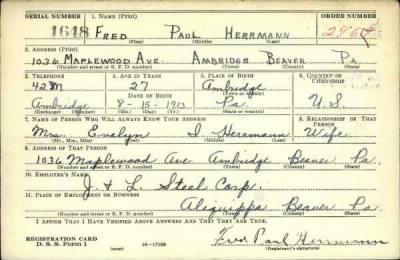 SERIAL NUMBER 1. NAME (Print) ORDER NUMBER
1648 FRED PAUL HERRMANN
(First) (Middle) (Last)
2. ADDRESS (Print)
1036 MAPLEWOOD AVE. AMBRIDGE BEAVER PA
(Number and street or R. F. D. number) (Town) (County) (State)
3. TELEPHONE 4. AGE IN YEARS 5. PLACE OF BIRTH 6. COUNTRY OF CITIZENSHIP
27 Ambridge
DATE OF BIRTH (Town or county)
Ambridge 8-15-1913 Pa. U.S.
(Exchange) (Number) (Mo.) (Day) (Yr.) (State or country)
7. NAME OF PERSON WHO WILL ALWAYS KNOW YOUR ADDRESS 8. RELATIONSHIP OF THAT PERSON
Mrs. Evelyn I Herrmann Wife
(Mr., Mrs., Miss) (First) (Middle) (Last)
9. ADDRESS OF THAT PERSON
1036 Maplewood Ave. Ambridge Beaver Pa.
(Number and street or R. F. D. number) (Town) (County) (State)
10. EMPLOYER'S NAME
J. & L. Steel Corp.
11. PLACE OF EMPLOYMENT OR BUSINESS
Aliquippa Beaver Pa.
(Number and street or R. F. D. number) (Town) (County) (State)
I AFFIRM THAT I HAVE VERIFIED ABOVE ANSWERS AND THAT THEY ARE TRUE.
REGISTRATION CARD
D. S. S. Form 1 (over) Fred Paul Herrmann
(Registrant's signature)